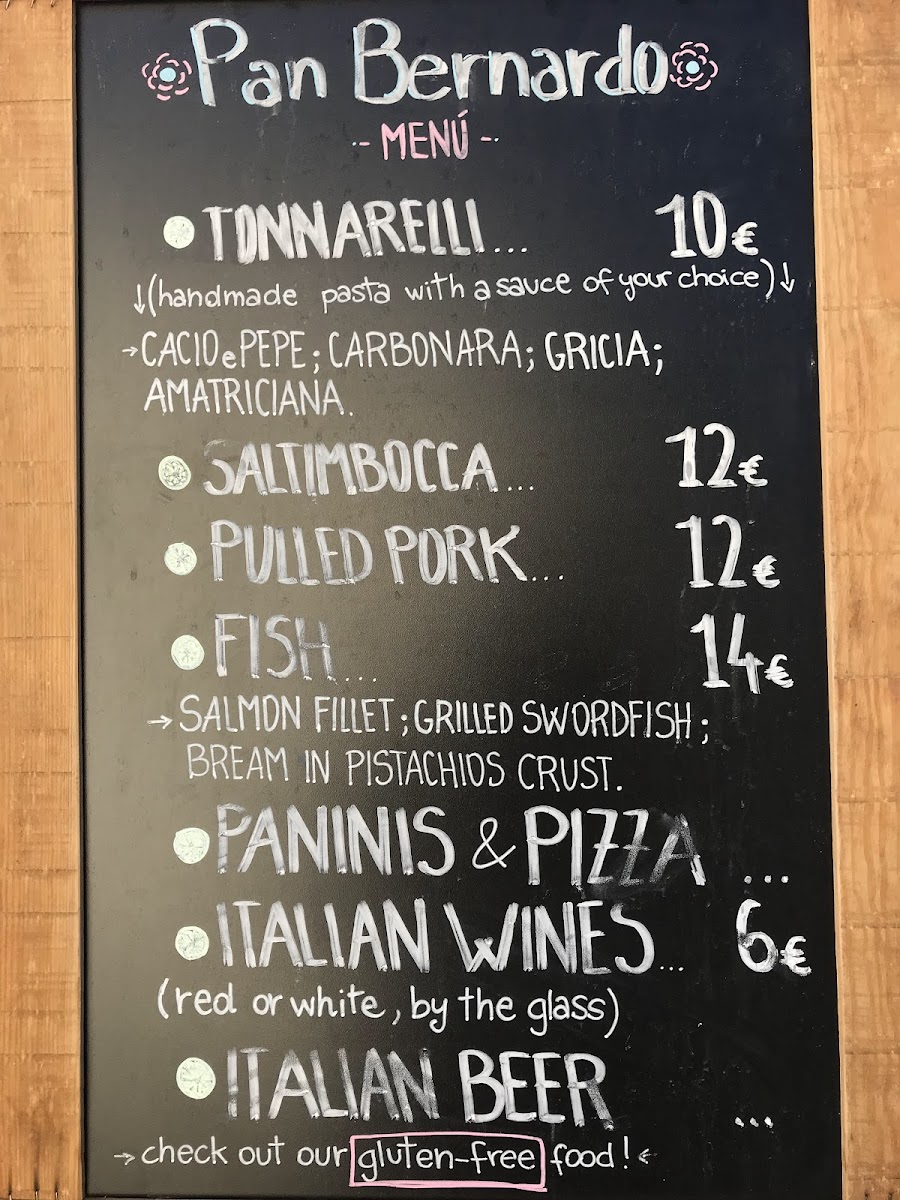 Pan Bernardo
- MENÚ -
TONNARELLI... 10€
↓(handmade pasta with a sauce of your choice)↓
→CACIO e PEPE; CARBONARA; GRICIA;
AMATRICIANA.
SALTIMBOCCA... 12€
PULLED PORK... 12€
FISH... 14€
→SALMON FILLET; GRILLED SWORDFISH;
BREAM IN PISTACHIOS CRUST.
PANINIS & PIZZA ...
ITALIAN WINES... 6€
(red or white, by the glass)
ITALIAN BEER ...
→check out our gluten-free food!←